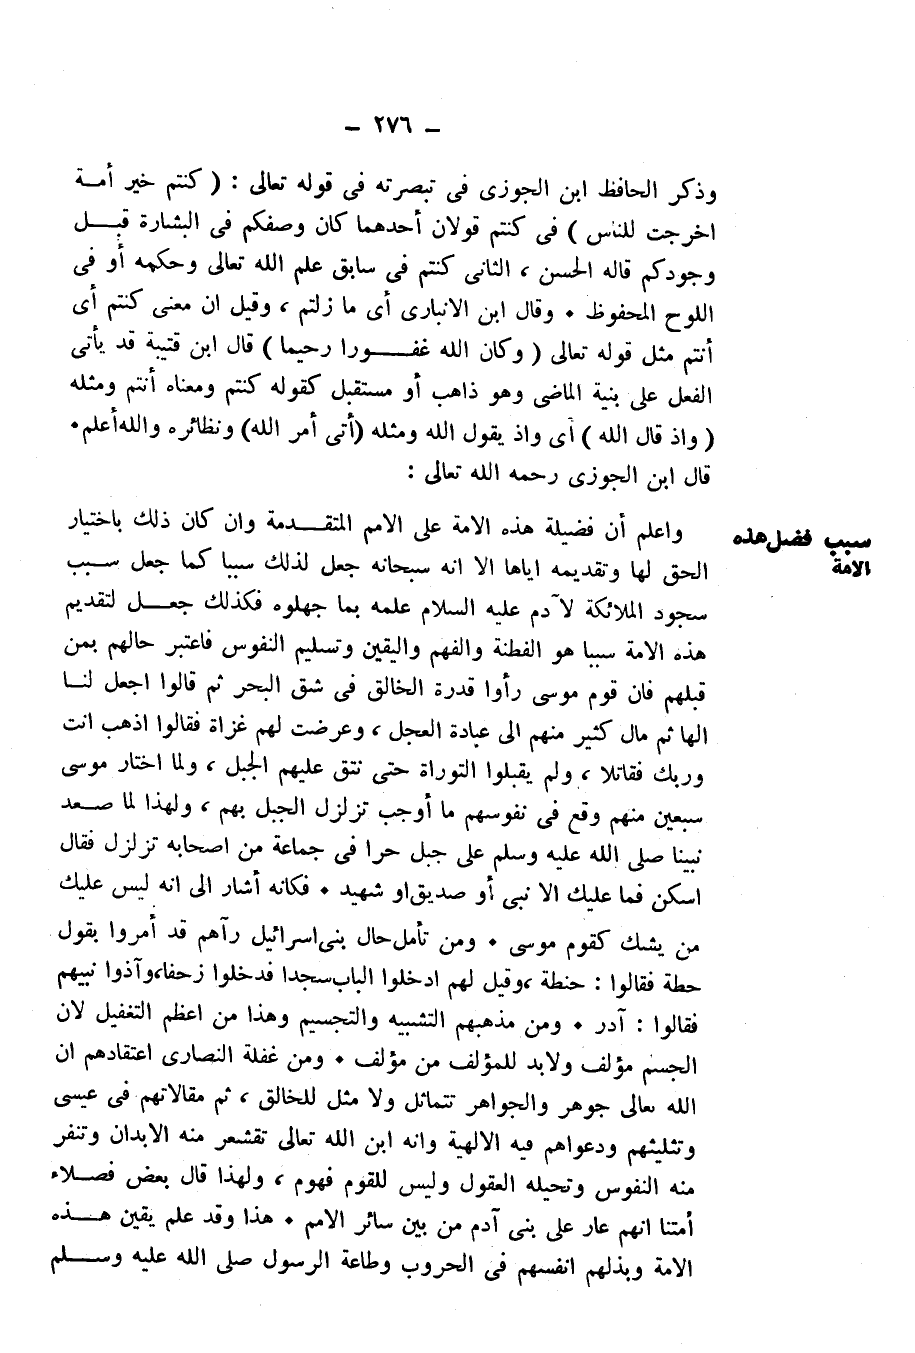 – ٢٧٦ –
وذكر الحافظ ابن الجوزى فى تبصرته فى قوله تعالى : ( كنتم خير أمــة
اخرجت للناس ) فى كنتم قولان أحدهما كان وصفكم فى البشارة قبــل
وجودكم قاله الحسن ، الثانى كنتم فى سابق علم الله تعالى وحكمه أو فى
اللوح المحفوظ • وقال ابن الانبارى أى ما زلتم ، وقيل ان معنى كنتم أى
أنتم مثل قوله تعالى ( وكان الله غفــورا رحيما ) قال ابن قتيبة قد يأتى
الفعل على بنية الماضى وهو ذاهب أو مستقبل كقوله كنتم ومعناه أنتم ومثله
( واذ قال الله ) أى واذ يقول الله ومثله (أتى أمر الله) ونظائره والله أعلم•
قال ابن الجوزى رحمه الله تعالى :
سبب فضل هذه
الامة
واعلم أن فضيلة هذه الامة على الامم المتقــدمة وان كان ذلك باختيار
الحق لها وتقديمه اياها الا انه سبحانه جعل لذلك سببا كما جعل ســبب
سجود الملائكة لآدم عليه السلام علمه بما جهلوه فكذلك جعــل لتقديم
هذه الامة سببا هو الفطنة والفهم واليقين وتسليم النفوس فاعتبر حالهم بمن
قبلهم فان قوم موسى رأوا قدرة الخالق فى شق البحر ثم قالوا اجعل لنــا
الها ثم مال كثير منهم الى عبادة العجل ، وعرضت لهم غزاة فقالوا اذهب انت
وربك فقاتلا ، ولم يقبلوا التوراة حتى نتق عليهم الجبل ، ولما اختار موسى
سبعين منهم وقع فى نفوسهم ما أوجب تزلزل الجبل بهم ، ولهذا لما صــعد
نبينا صلى الله عليه وسلم على جبل حرا فى جماعة من اصحابه تزلزل فقال
اسكن فما عليك الا نبى أو صديق او شهيد • فكانه أشار الى انه ليس عليك
من يشك كقوم موسى • ومن تأمل حال بنى اسرائيل رآهم قد أمروا بقول
حطة فقالوا : حنطة ، وقيل لهم ادخلوا الباب سجدا فدخلوا زحفا، وآذوا نبيهم
فقالوا : آدر • ومن مذهبهم التشبيه والتجسيم وهذا من اعظم التغفيل لان
الجسم مؤلف ولابد للمؤلف من مؤلف • ومن غفلة النصارى اعتقادهم ان
الله تعالى جوهر والجواهر تتماثل ولا مثل للخالق ، ثم مقالاتهم فى عيسى
وتثليثهم ودعواهم فيه الالهية وانه ابن الله تعالى تقشعر منه الابدان وتنفر
منه النفوس وتحيله العقول وليس للقوم فهوم ، ولهذا قال بعض فضــلاء
أمتنا انهم عار على بنى آدم من بين سائر الامم • هذا وقد علم يقين هــذه
الامة وبذلهم انفسهم فى الحروب وطاعة الرسول صلى الله عليه وســلم